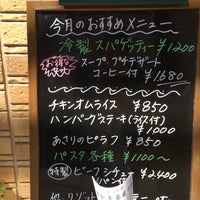 今月のおすすめメニュー
冷製 スパゲッティー ¥1200
お得なセット スープ、プチデザート
コーヒー付 ¥1680
チキンオムライス ¥850
ハンバーグステーキ(ライス付)
¥1000
あさりのピラフ ¥850
パスタ各種 ¥1100〜
特製 ビーフシチュー ¥2400
パン付
リゾット